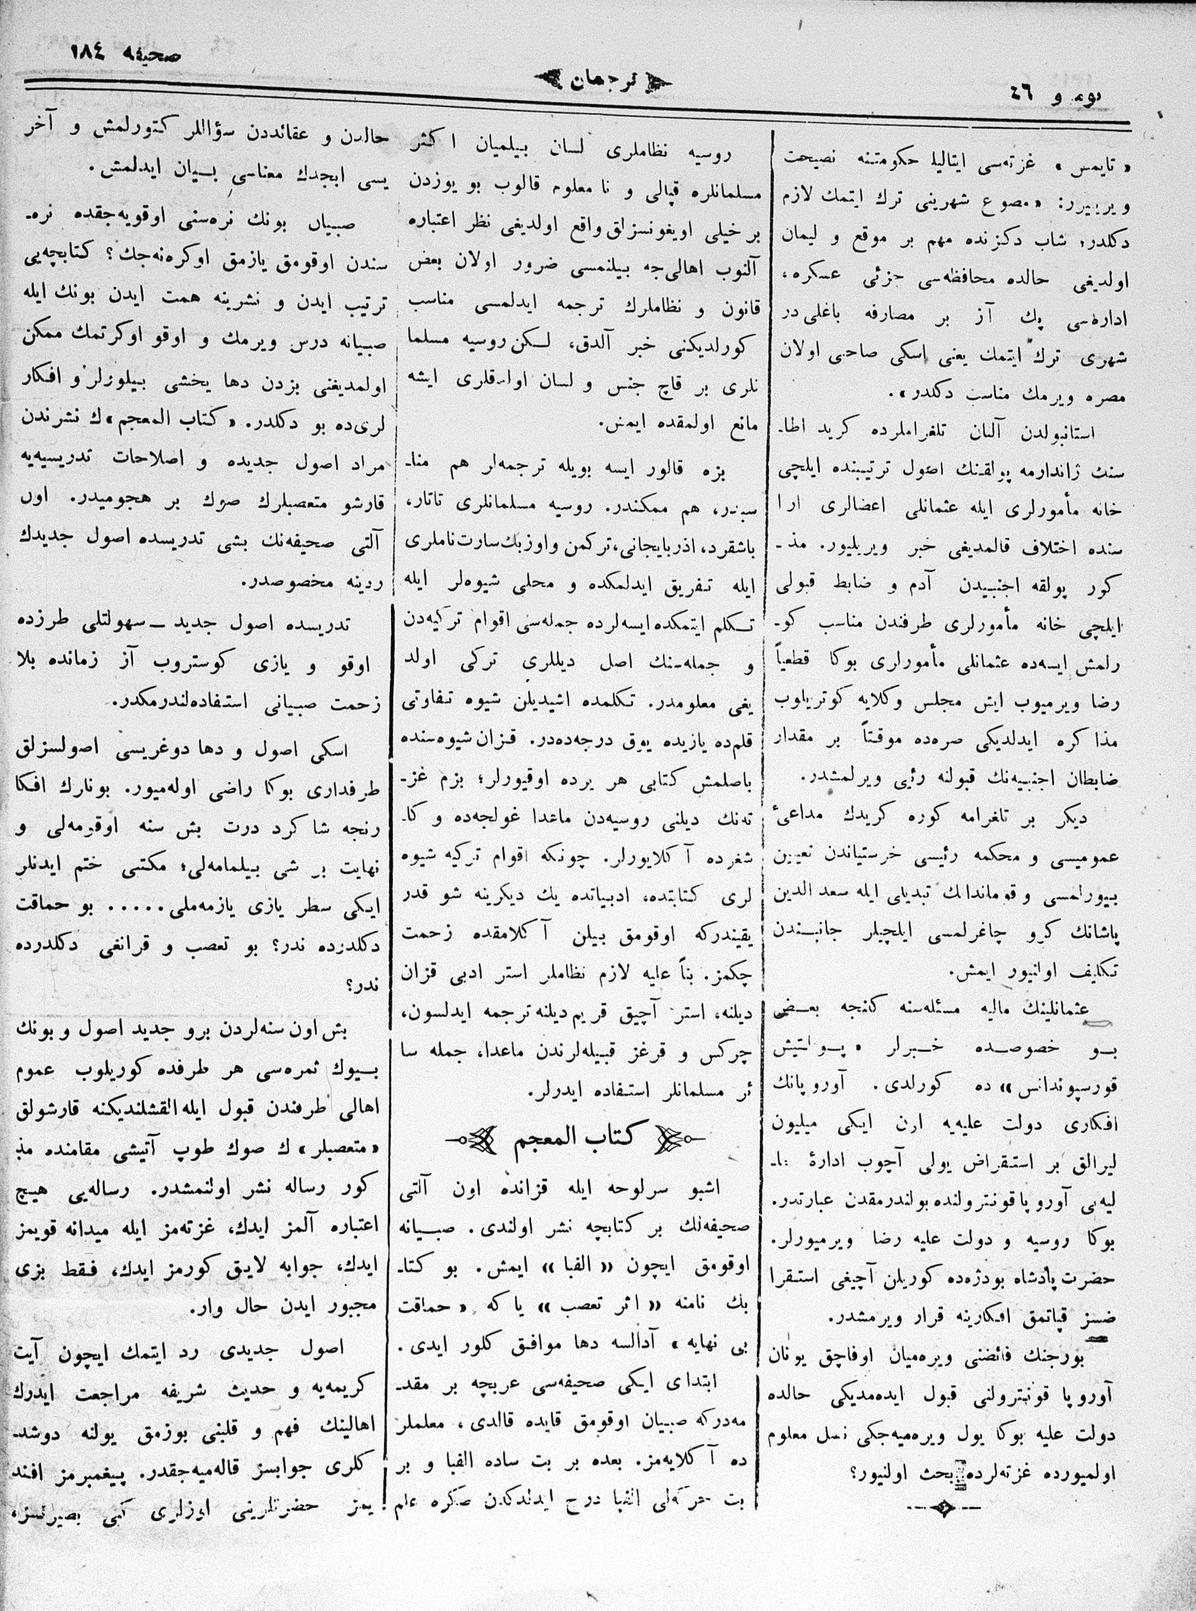 نومرو ٤٦
ترجمان
صحیفه ١٨٤
« تایمس » غزته‌سی ایتالیا حکومتنه نصیحت
ویرییور: « مصوع شهرینی ترك ایتمك لازم
دكلدر؛ شاب دكزنده مهم بر موقع و لیمان
اولدیغی حالده محافظه‌سی جزئی عسكره،
اداره‌سی پك آز بر مصارفه باغلی‌در
شهری ترك ایتمك یعنی اسكی صاحبی اولان
مصره ویرمك مناسب دكلدر».
استانبولدن آلنان تلغراملرده كرید اطا۔
سنك ژاندارمه پولقنك اصول ترتیبنده ایلچی
خانه مأمورلری ایله عثمانلی اعضالری ارا
سنده اختلاف قالمدیغی خبر ویریلیور. مذ۔
كور پولقه اجنبیدن آدم و ضابط قبولی
ایلچی خانه مأمورلری طرفندن مناسب كو۔
رلمش ایسه‌ده عثمانلی مأمورلری بوكا قطعیاً
رضا ویرمیوب ایش مجلس وكلایه كوتریلوب
مذاكره ایدلدیكی صره‌ده موقتاً بر مقدار
ضابطان اجنبیه‌نك قبولنه رئیی ویرلمشدر.
دیكر بر تلغرامه كوره كریدك مداعیٔ
عمومیسی و محكمه رئیسی خرستیاندن تعیین
بیورلمسی و قوماندانك تبدیلی ایله سعد الدین
پاشانك كیرو چاغرلمسی ایلچیلر جانبندن
تكلیف اولنیور ایمش.
عثمانلینك مالیه مسئله‌سنه كلنجه بعض
بو خصوصده خبرلر « پولیتیش
قورسپوندانس» ده كورلدی. آوروپانك
افكاری دولت علیه‌یه اون ایكی میلیون
لیرالق بر استقراض یولی آچوب ادارهٔ ما۔
لیه‌یی آوروپا قونترولنده بولندرمقدن عبارتدر.
بوكا روسیه و دولت علیه رضا ویرمیورلر.
حضرت پادشاه بودژه‌ده كوریلن آچیغی استقرا
ضسز قپاتمق افكارینه قرار ویرمشدر.
بورجنك فائضنی ویره‌میان اوفاچق یونان
آوروپا قونترولنی قبول ایده‌مدیكی حالده
دولت علیه بوكا یول ویره‌میه‌جكی نصل معلوم
اولمیورده غزته‌لرده بحث اولنیور؟
روسیه نظاملری لسان بیلمیان اكثر
مسلمانلره قپالی و نا معلوم قالوب بو یوزدن
بر خیلی اویغونسزلق واقع اولدیغی نظر اعتباره
آلنوب اهالی‌جه بیلنمسی ضرور اولان بعض
قانون و نظاملرك ترجمه ایدلمسی مناسب
كورلدیكنی خبر آلدق، لكن روسیه مسلما
نلری بر قاچ جنس و لسان اولدقلری ایشه
مانع اولمقده ایمش.
بزه قالور ایسه بویله ترجمه‌لر هم منا۔
سبدر، هم ممكندر. روسیه مسلمانلری تاتار،
باشقرد، اذربایجانی، تركمن واوزبك سارت ناملری
ایله تفریق ایدلمكده و محلی شیوه‌لر ایله
تكلم ایتمكده ایسه‌لرده جمله‌سی اقوام تركیه‌دن
و جمله‌سنك اصل دیللری تركی اولد
یغی معلومدر. تكلمده اشیدیلن شیوه تفاوتی
قلم‌ده یازیده یوق درجه‌ده‌در. قزان شیوه‌سنده
باصلمش كتابی هر یرده اوقیورلر؛ بزم غز۔
ته‌نك دیلنی روسیه‌دن ماعدا غولجه‌ده و كا۔
شغرده آكلایورلر. چونكه اقوام تركیه شیوه
لری كتابتده، ادبیاتده یك دیكرینه شو قدر
یقیندركه اوقومق بیلن آكلامقده زحمت
چكمز. بناً علیه لازم نظاملر استر ادبی قزان
دیلنه، استر آچیق قریم دیلنه ترجمه ایدلسون،
چركس و قرغز قبیله‌لرندن ماعدا، جمله سا
ئر مسلمانلر استفاده ایدرلر.
كتاب المعجم
اشبو سرلوحه ایله قزانده اون آلتی
صحیفه‌لك بر كتابچه نشر اولندی. صبیانه
اوقومق ایچون «الفبا» ایمش. بو كتا۔
بك نامنه «اثر تعصب» یا كه «حماقت
بی نهایه» آدالسه دها موافق كلور ایدی.
ابتدای ایكی صحیفه‌سی عربچه بر مقد۔
مه‌دركه صبیان اوقومق قایده قالدی، معلملر
ده آكلایه‌مز. بعده بر بت ساده الفبا و بر
بت حركه‌لی الفبا درج ایدلدكدن صكره علم
حالدن و عقائددن سؤاللر كتورلمش و آخر
یسی ابجدك معناسی بیان ایدلمش.
صبیان بونك نره‌سنی اوقویه‌جقده نره۔
سندن اوقومق یازمق اوكره‌نه‌جك؟ كتابچه‌یی
ترتیب ایدن و نشرینه همت ایدن بونك ایله
صبیانه درس ویرمك و اوقو اوكرتمك ممكن
اولمدیغنی بزدن دها یخشی بیلورلر و افكار
لری‌ده بو دكلدر. «كتاب المعجم»ك نشرندن
مراد اصول جدیده و اصلاحات تدریسیه‌یه
قارشو متعصبلرك صوك بر هجومیدر. اون
آلتی صحیفه‌نك بشی تدریسده اصول جدیدك
ردینه مخصوصدر.
تدریسده اصول جدید ــ سهولتلی طرزده
اوقو و یازی كوستروب آز زمانده بلا
زحمت صبیانی استفاده‌لندرمكدر.
اسكی اصول و دها دوغریسی اصولسزلق
طرفداری بوكا راضی اوله‌میور. بونلرك افكا
رنجه شاكرد درت بش سنه اوقومه‌لی و
نهایت بر شی بیلمامه‌لی؛ مكتبی ختم ایدنلر
ایكی سطر یازی یازمه‌ملی..... بو حماقت
دكلدرده ندر؟ بو تعصب و قرانغی دكلدرده
ندر؟
بش اون سنه‌لردن برو جدید اصول و بونك
بیوك ثمره‌سی هر طرفده كوریلوب عموم
اهالی طرفندن قبول ایله القشلندیكنه قارشولق
«متعصبلر»ك صوك طوپ آتیشی مقامنده مذ
كور رساله نشر اولنمشدر. رساله‌یی هیچ
اعتباره آلمز ایدك، غزته‌مز ایله میدانه قویمز
ایدك، جوابه لایق كورمز ایدك، فقط بزی
مجبور ایدن حال وار.
اصول جدیدی رد ایتمك ایچون آیت
كریمه‌یه و حدیث شریفه مراجعت ایدرك
اهالینك فهم و قلبنی بوزمق یولنه دوشد۔
كلری جوابسز قاله‌میه‌جقدر. پیغمبرمز افند
یمز حضرتلرینی اوزلری كبی بصیرتسز،